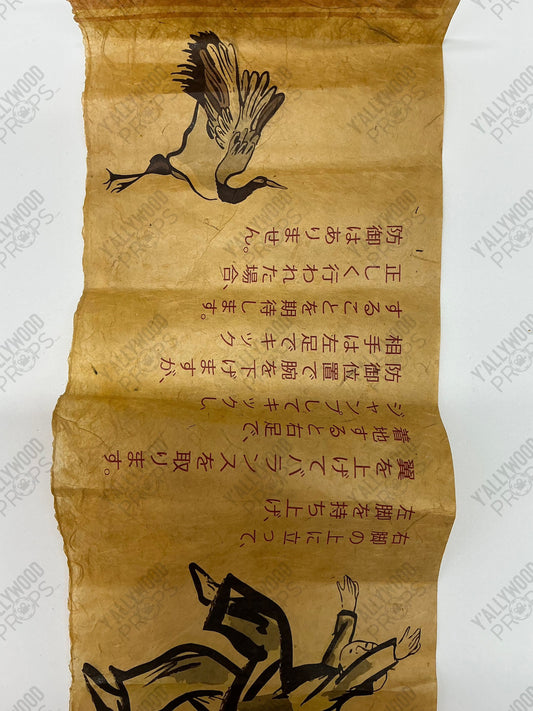 右脚の上に立って、
左脚を持ち上げ、
翼を上げてバランスを取ります。
着地すると右足で、
ジャンプしてキックし、
防御位置で腕を下げますが、
相手は左足でキック
することを期待します。
正しく行われた場合、
防御はありません。
Y'ALLYWOOD
PROPS